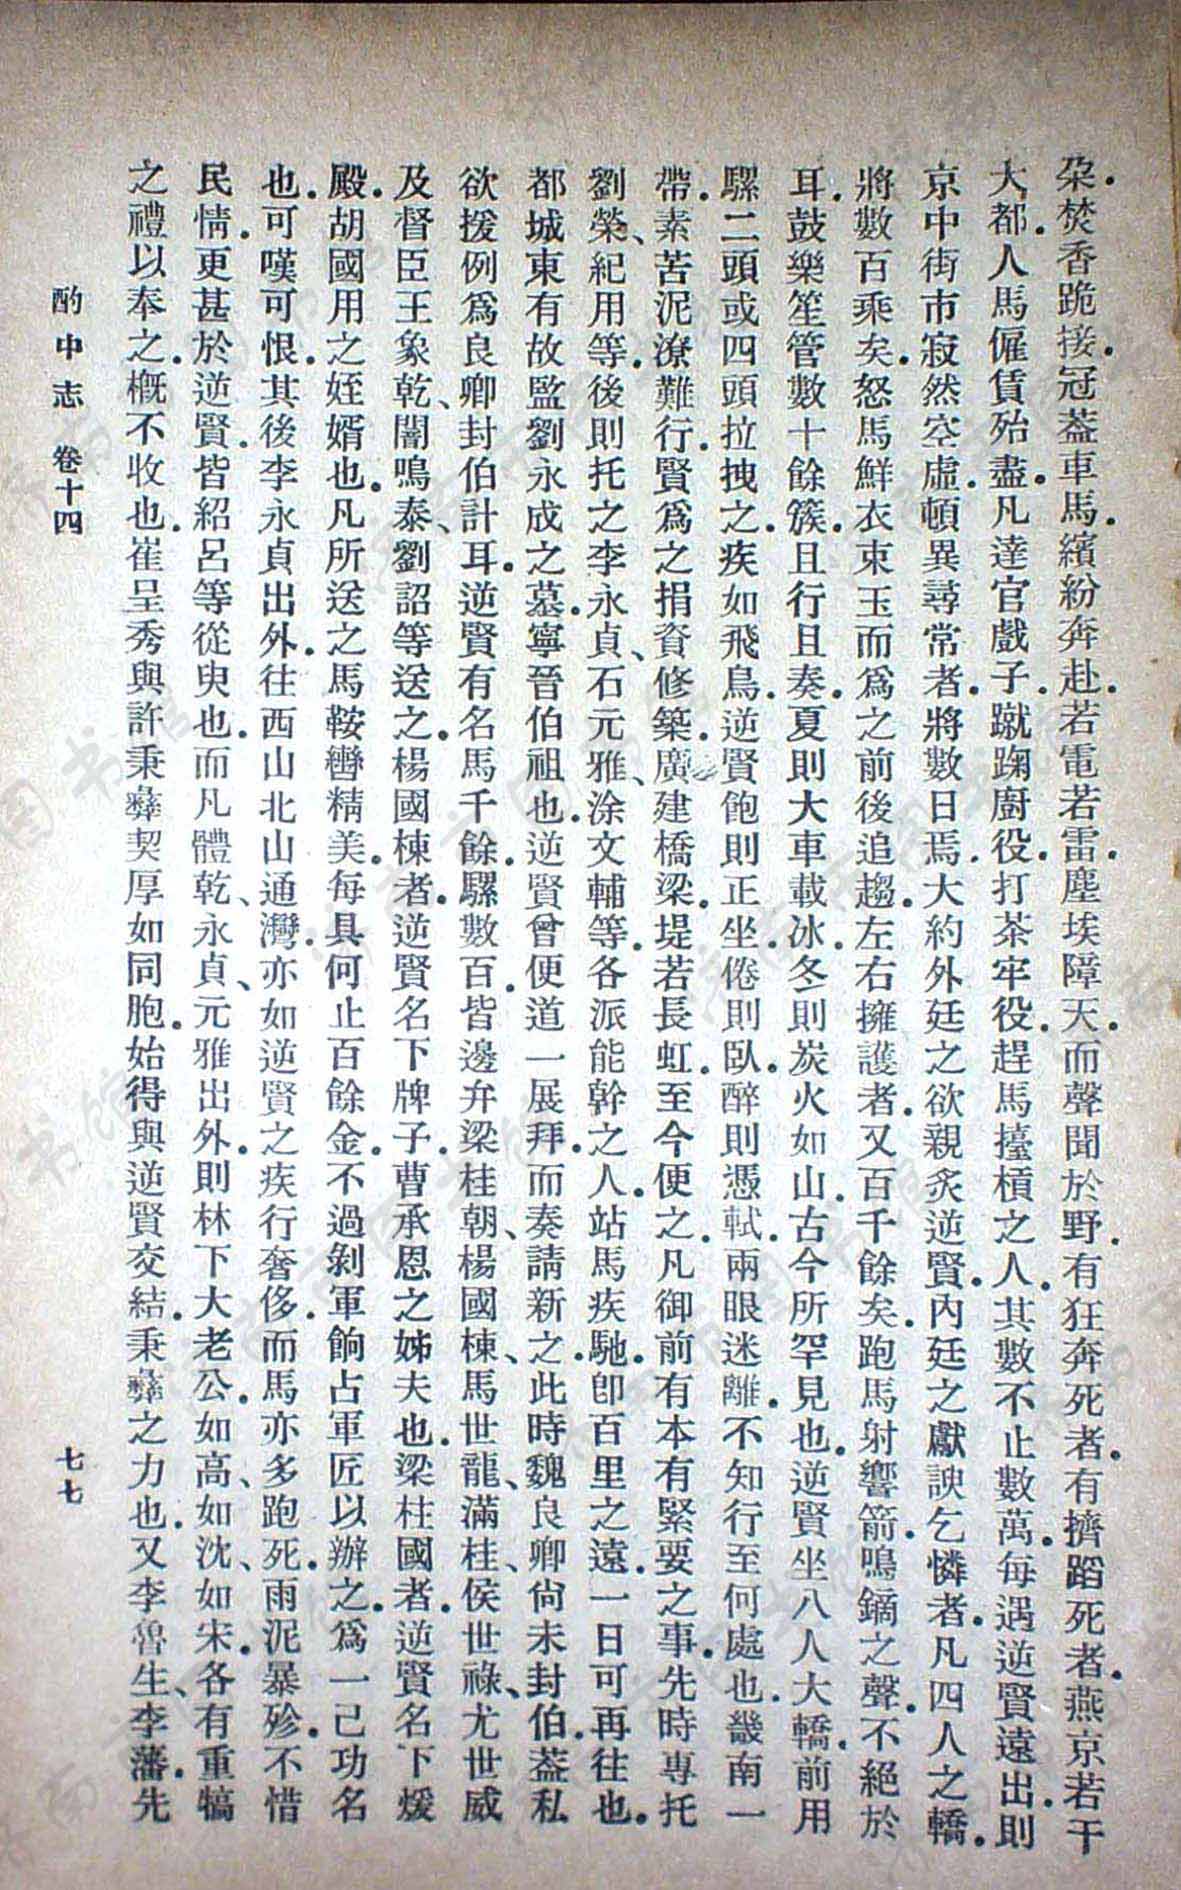 朶焚香跪接冠蓋車馬繽紛奔赴若電若雷塵埃障天而聲聞於野有狂奔死者有擠蹈死者燕京若干
大都人馬僱賃殆盡凡達官戲子蹴踘廚役打茶牢役趕馬擡槓之人其數不止數萬每遇逆賢遠出則
京中街市寂然空虛頓異尋常者將數日焉大約外廷之欲親炙逆賢內廷之獻諛乞憐者凡四人之轎
將數百乘矣怒馬鮮衣束玉而爲之前後追趨左右擁護者又百千餘矣跑馬射響箭鳴鏑之聲不絕於
耳鼓樂笙管數十餘簇且行且奏夏則大車載冰冬則炭火如山古今所罕見也逆賢坐八人大轎前用
騾二頭或四頭拉拽之疾如飛鳥逆賢飽則正坐倦則臥醉則憑軾兩眼迷離不知行至何處也畿南一
帶素苦泥潦難行賢爲之捐資修築廣建橋梁堤若長虹至今便之凡御前有本有緊要之事先時專托
劉榮、紀用等後則托之李永貞、石元雅、涂文輔等各派能幹之人站馬疾馳卽百里之遠一日可再往也
都城東有故監劉永成之墓寧晉伯祖也逆賢曾便道一展拜而奏請新之此時魏良卿尙未封伯蓋私
欲援例爲良卿封伯計耳逆賢有名馬千餘騾數百皆邊弁梁桂朝、楊國棟、馬世龍、滿桂、侯世祿、尤世威
及督臣王象乾、閻鳴泰、劉詔等送之楊國棟者逆賢名下牌子曹承恩之姊夫也梁柱國者逆賢名下煖
殿胡國用之姪婿也凡所送之馬鞍轡精美每具何止百餘金不過剝軍餉占軍匠以辦之爲一己功名
也可嘆可恨其後李永貞出外往西山北山通灣亦如逆賢之疾行奢侈而馬亦多跑死雨泥暴殄不惜
民情更甚於逆賢皆紹呂等從臾也而凡體乾、永貞、元雅出外則林下大老公如高、如沈、如宋各有重犒
之禮以奉之概不收也崔呈秀與許秉彝契厚如同胞始得與逆賢交結秉彝之力也又李魯生、李藩先
酌中志 卷十四 七七